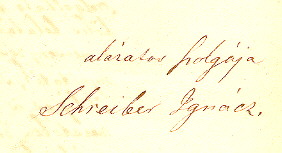 alázatos szolgája
Schreiber Ignácz.